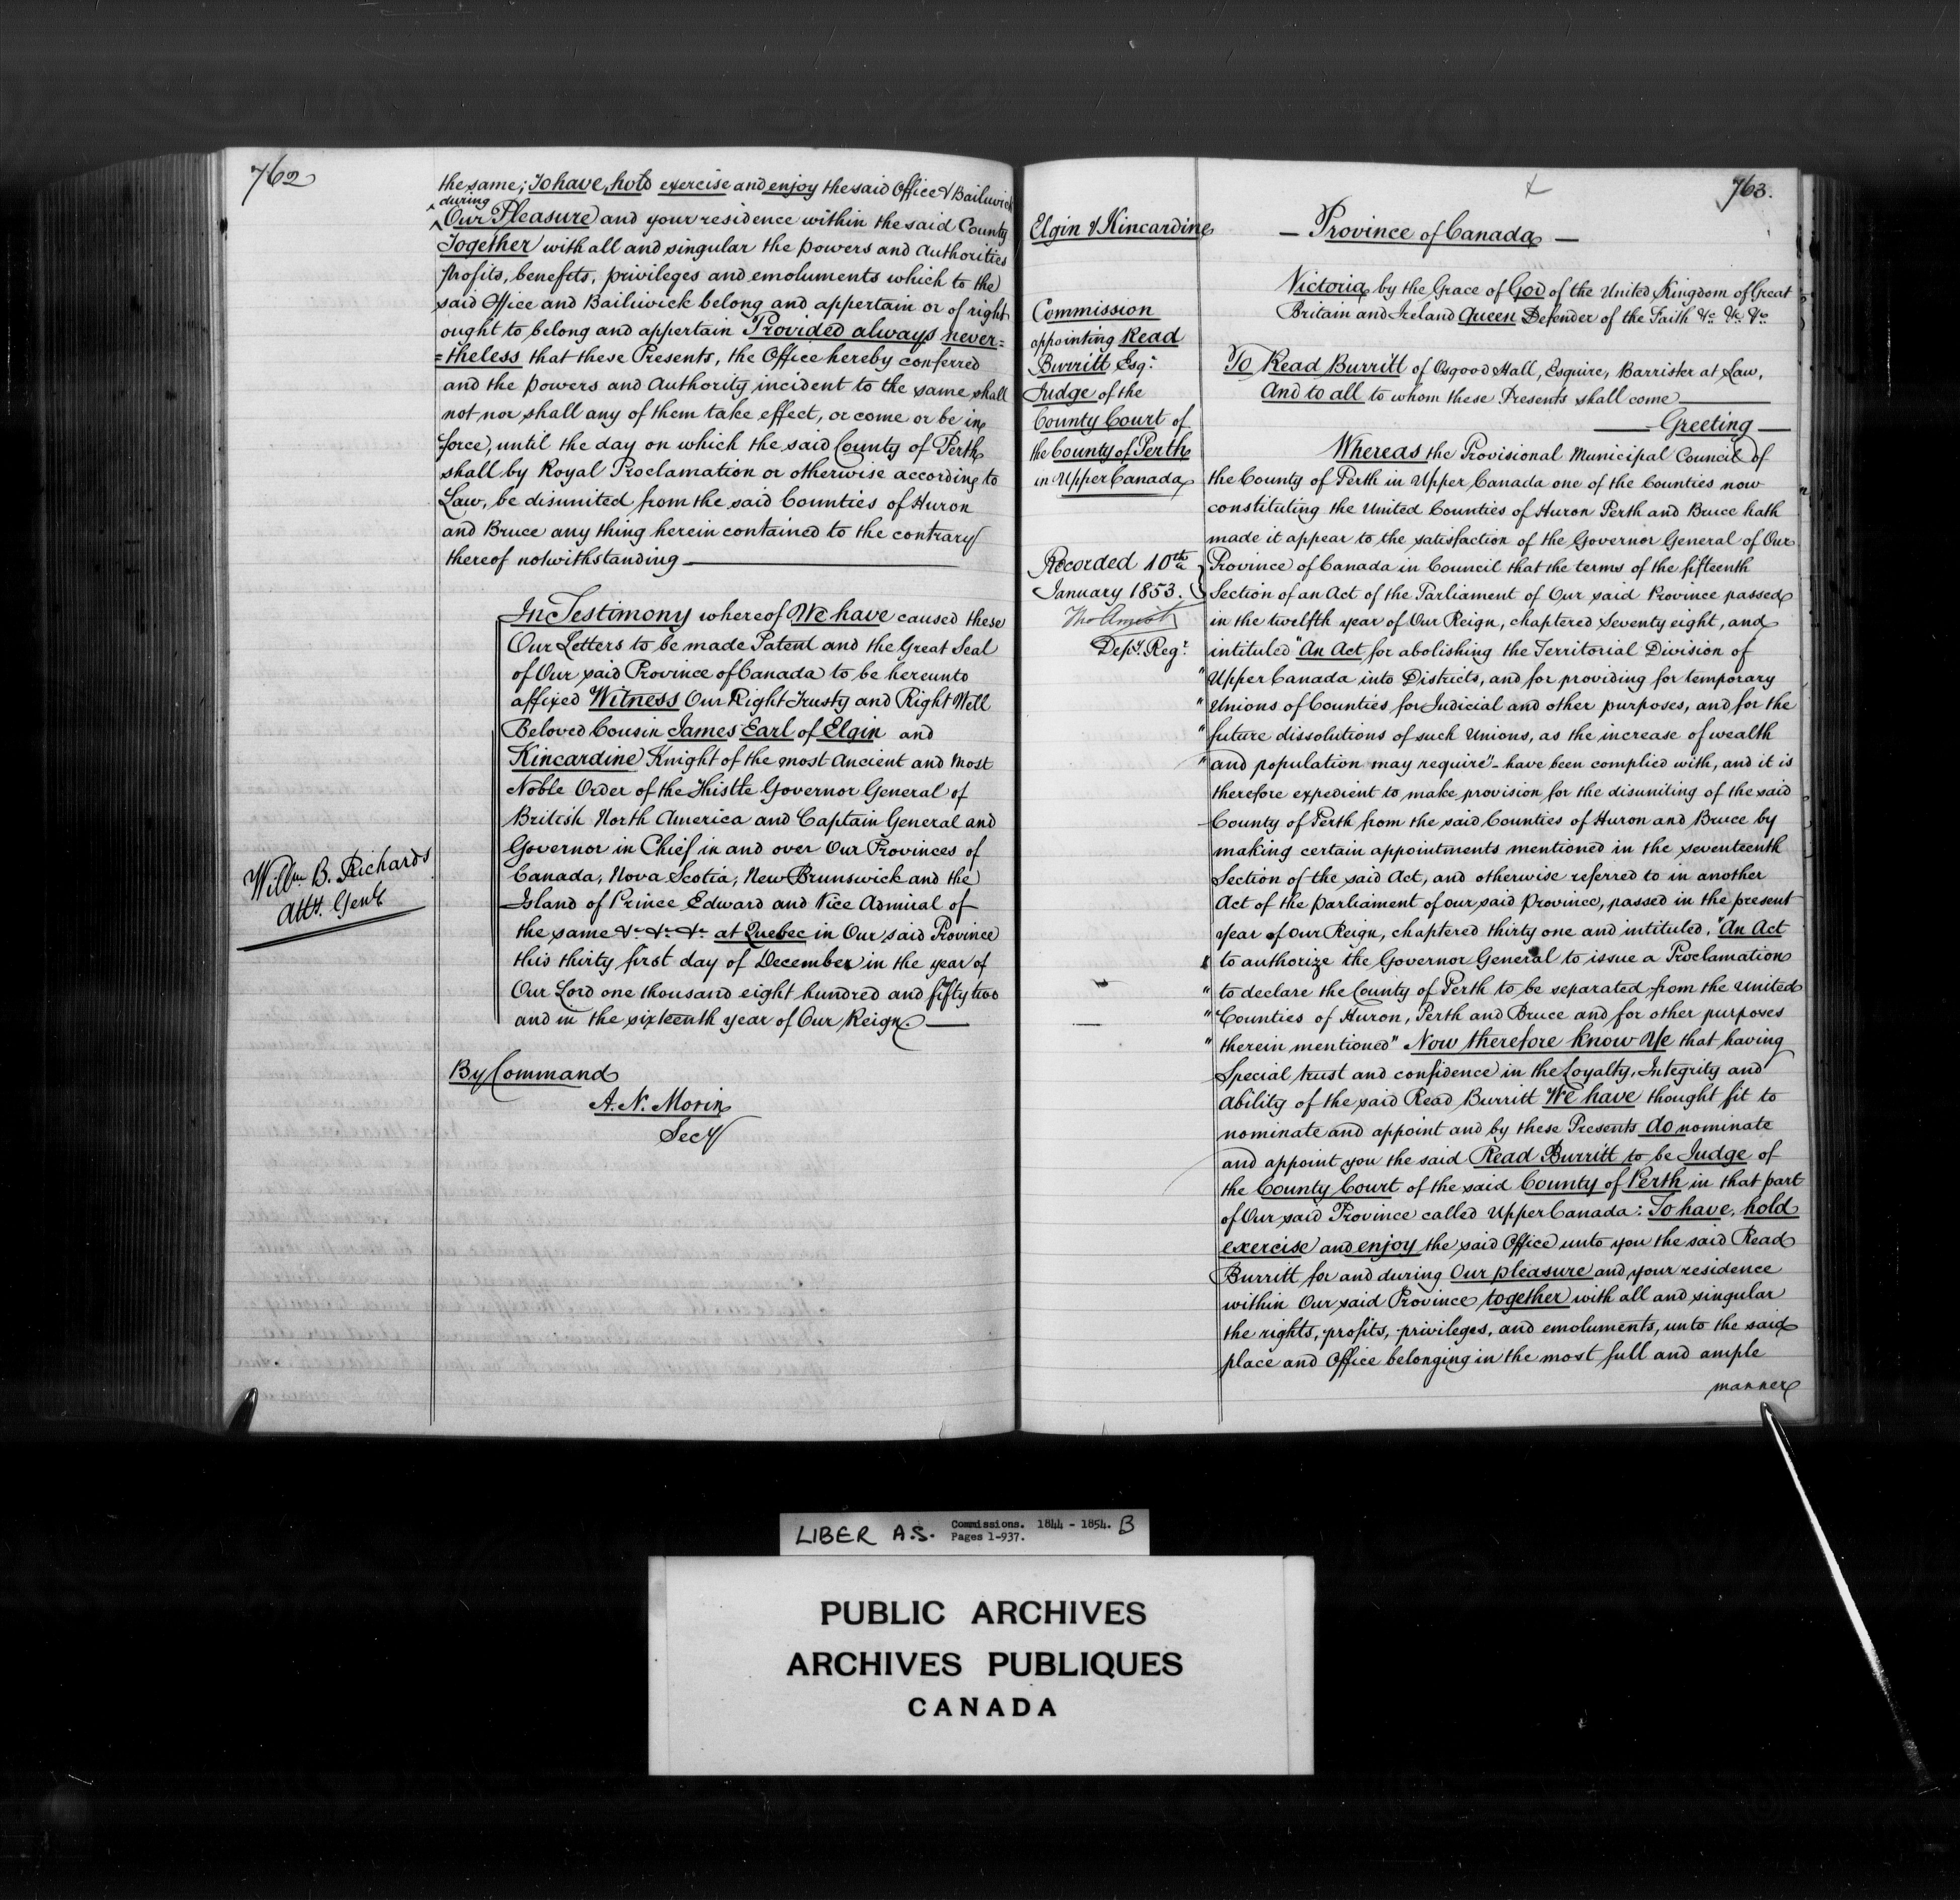 762
the same; To have, hold exercise and enjoy the said Office & Bailiwick
during
Our Pleasure and your residence within the said County
Together with all and singular the powers and Authorities
profits, benefits, privileges and emoluments which to the
said Office and Bailiwick belong and appertain or of right
ought to belong and appertain Provided always never=
=theless that these Presents, the Office hereby conferred
and the powers and Authority incident to the same shall
not nor shall any of them take effect, or come or be in
force, until the day on which the said County of Perth
shall by Royal Proclamation or otherwise according to
Law, be disunited from the said Counties of Huron
and Bruce any thing herein contained to the contrary
thereof notwithstanding
In Testimony whereof We have caused these
Our Letters to be made Patent and the Great Seal
of Our said Province of Canada to be hereunto
affixed Witness Our Right Trusty and Right Well
Beloved Cousin James Earl of Elgin and
Kincardine Knight of the most Ancient and Most
Noble Order of the Thistle Governor General of
British North America and Captain General and
Governor in Chief in and over Our Provinces of
Canada, Nova Scotia, New Brunswick and the
Island of Prince Edward and Vice Admiral of
the same &c &c &c at Quebec in Our said Province
this thirty first day of December in the year of
Our Lord one thousand eight hundred and fifty two
and in the sixteenth year of Our Reign.
Willm B. Richards
Atty. Genl
By Command
A. N. Morin
Secy
763.
Elgin & Kincardine
Commission
appointing Read
Burritt Esqr.
Judge of the
County Court of
the County of Perth
in Upper Canada
Recorded 10th
January 1853.
Tho Amiot
Depy. Regr.
Province of Canada
Victoria by the Grace of God of the United Kingdom of Great
Britain and Ireland Queen Defender of the Faith &c &c &c
To Read Burritt of Osgood Hall, Esquire, Barrister at Law,
And to all to whom these Presents shall come
Greeting
Whereas the Provisional Municipal Council of
the County of Perth in Upper Canada one of the Counties now
constituting the United Counties of Huron Perth and Bruce hath
made it appear to the satisfaction of the Governor General of Our
Province of Canada in Council that the terms of the fifteenth
Section of an Act of the Parliament of Our said Province passed
in the twelfth year of Our Reign, chaptered Seventy eight, and
intituled "An Act for abolishing the Territorial Division of
" Upper Canada into Districts, and for providing for temporary
" Unions of Counties for Judicial and other purposes, and for the
" future dissolutions of such Unions, as the increase of wealth
" and population may require" - have been complied with, and it is
therefore expedient to make provision for the disuniting of the said
County of Perth from the said Counties of Huron and Bruce by
making certain appointments mentioned in the seventeenth
Section of the said Act, and otherwise referred to in another
Act of the Parliament of our said Province, passed in the present
year of Our Reign, chaptered thirty one and intituled, "An Act
" to authorize the Governor General to issue a Proclamation
" to declare the County of Perth to be separated from the United
" Counties of Huron, Perth and Bruce and for other purposes
" therein mentioned" Now therefore Know Ye that having
Special trust and confidence in the Loyalty, Integrity and
Ability of the said Read Burritt We have thought fit to
nominate and appoint and by these Presents do nominate
and appoint you the said Read Burritt to be Judge of
the County Court of the said County of Perth in that part
of Our said Province called Upper Canada: To have, hold
exercise and enjoy the said Office unto you the said Read
Burritt for and during Our pleasure and your residence
within Our said Province together with all and singular
the rights, profits, privileges, and emoluments, unto the said
place and Office belonging in the most full and ample
manner
LIBER A.S. Commissions. 1844 - 1854. B
Pages 1-937.
PUBLIC ARCHIVES
ARCHIVES PUBLIQUES
CANADA